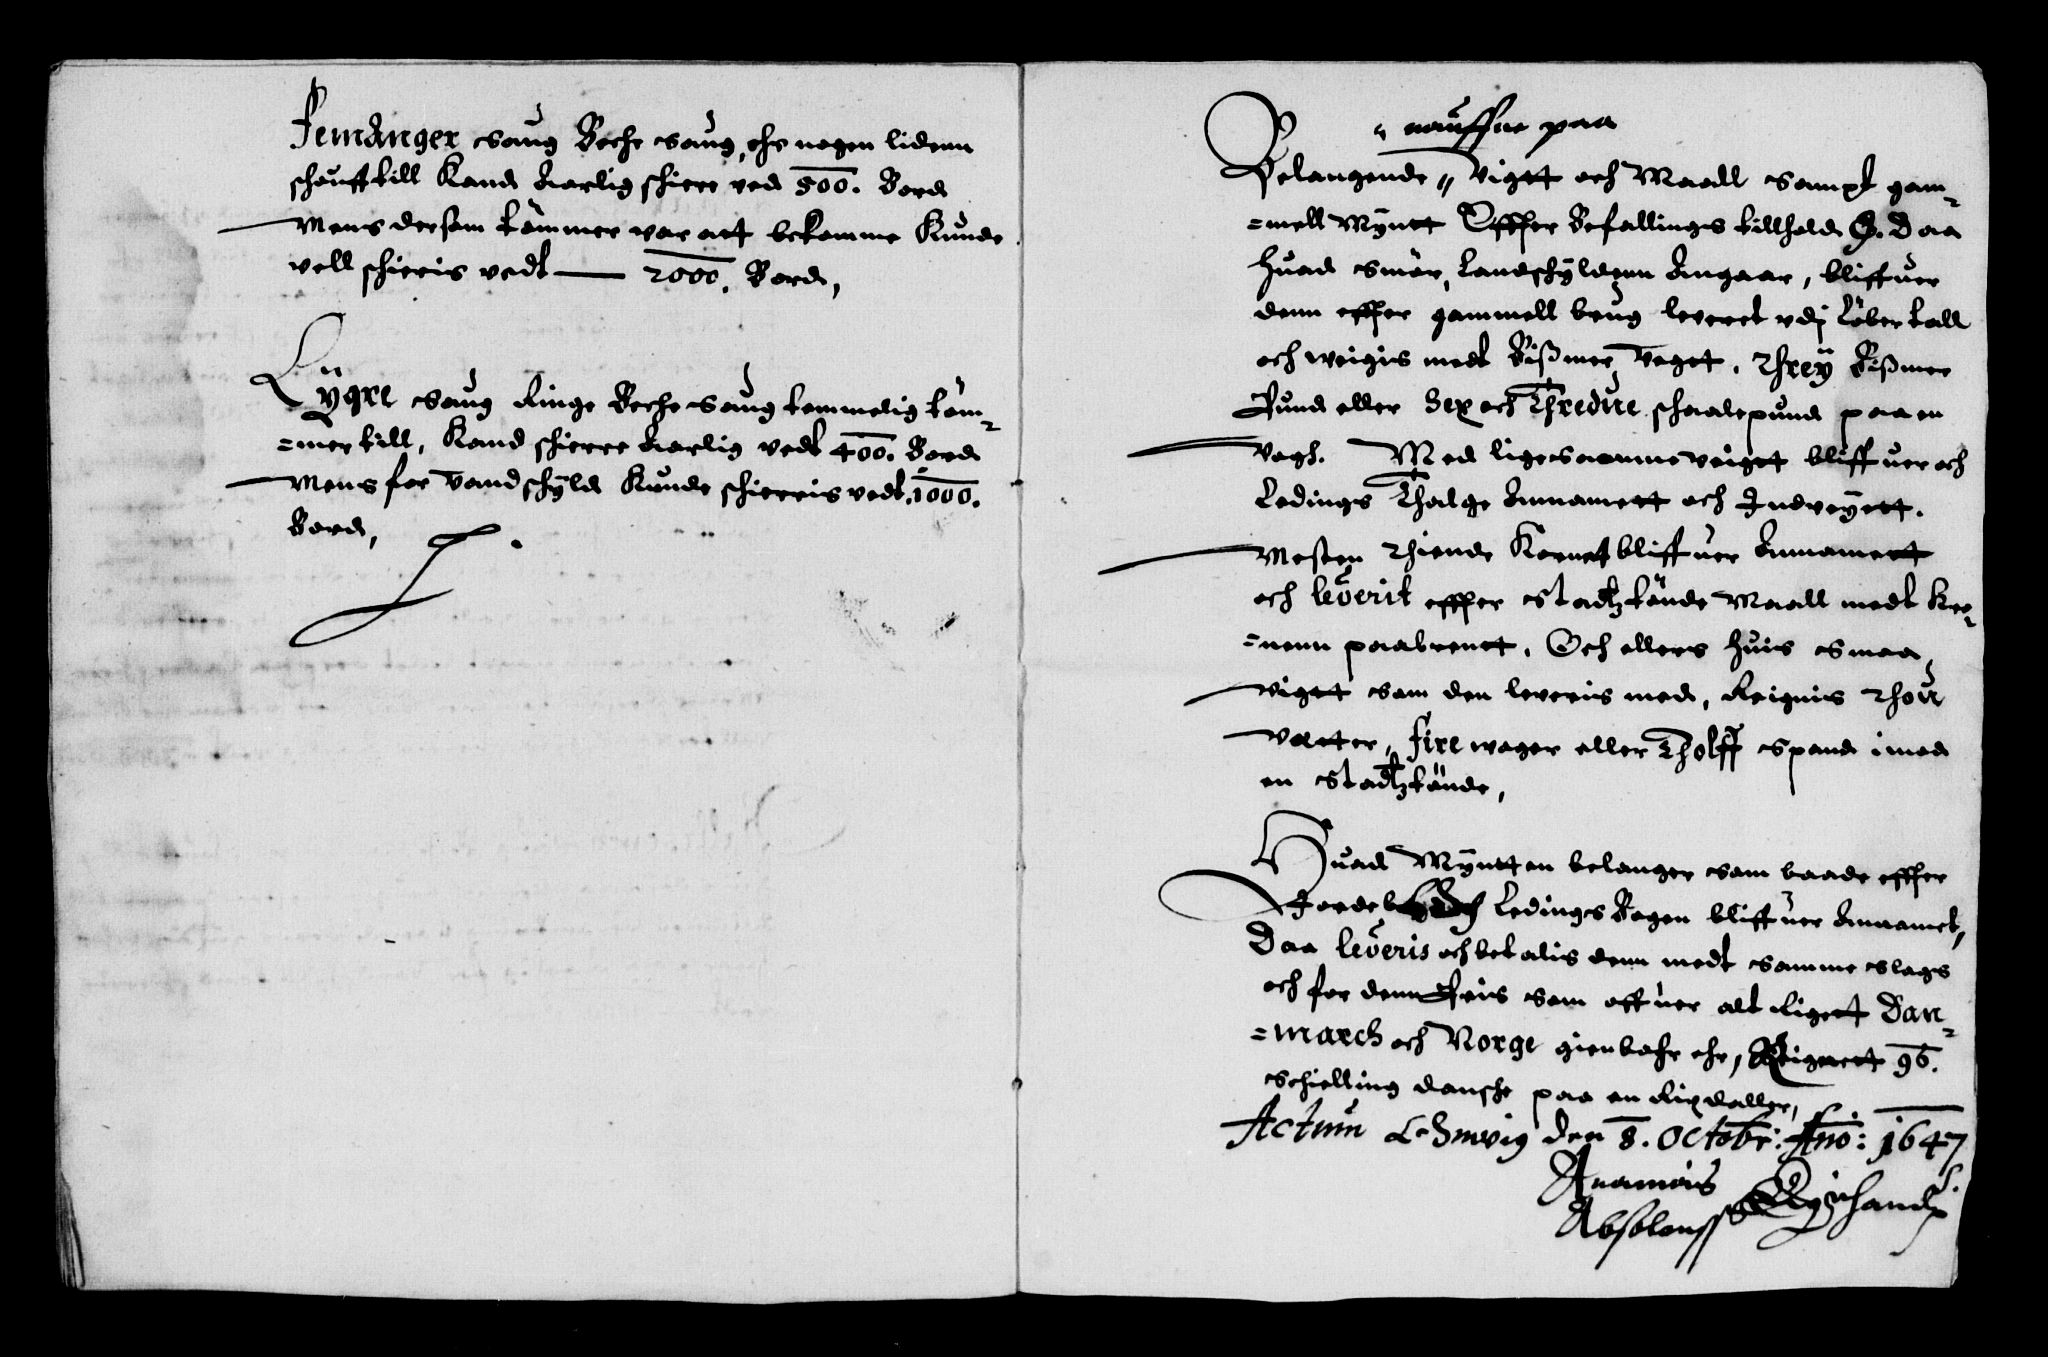 Femanger saug Beche saug, ehr nogen liden
schouff till Kand Aarlig schiere ved 500. Bord
Mens dersom tømmer var att bekomme Kunde
vell schieris vedt — 2000. Bord,
Lygre saug Ringe Beche saug temmelig tøm-
=mer till, Kand schierre Aarlig vedt 400. Bord
Mens for Vandschyld Kunde schierris vedt 1000.
Bord,
nauffne paa
Belangende Vigtt och Maall sampt gam-
=mell Myntt Effter Befallings tillhold S. Daa
huad smør, Landschylden Angaar, bliffuer
denn effter gammell brug leveret vdj Løber tall
och weigis medt Bißmer Veget. Threy Bißmer
Pund eller Sex och Thredue schaalepund paa en
Vogh. Med lige samme veigtt bliffuer och
Ledings Thalge Annamett och Indveyett.
Mesten Thiende Kornet bliffuer Annamett
och leverit effter Stadtz tønde Maall medt Kro-
=nenn paabrentt. Och ellers huis smaa
Vigtt som den leveris med, Reignis Thou
Vetter, fire wager eller Tholff Spand imod
en Stadtz tønde,
Huad Myntten belanger som baade effter
Jordeb och Ledings Bogen bliffuer Annamet,
Daa leveris och betalis denn medt samme slags
och for denn Pris som offuer alt Riget Dan-
=march och Norge gienbehr ehr, Reignett 96.
Schielling Dansche paa en Rixdaller,
Actum den 8. Octobr: Ano: 1647
Absolonss Egenhandt